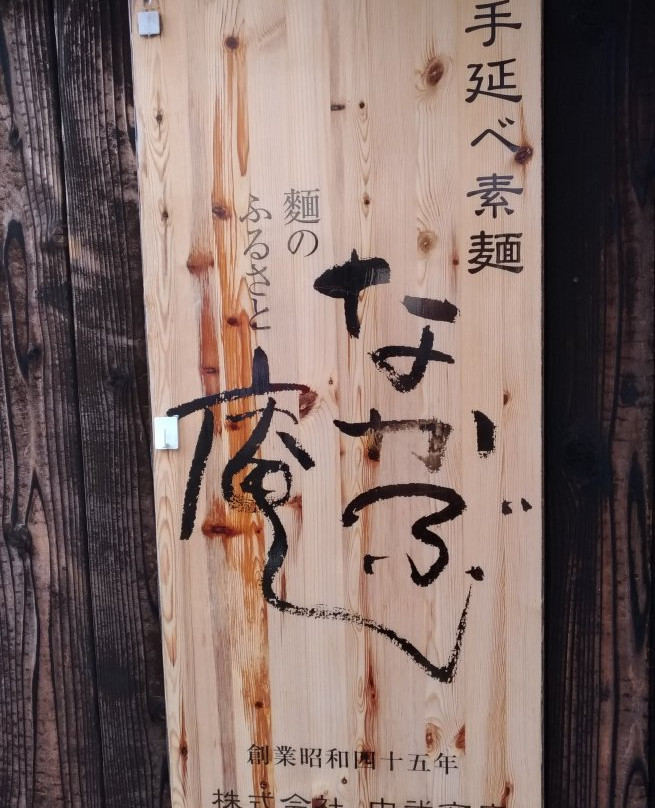 手延べ素麺
麵の
ふるさと
なかぶ
庵
創業昭和四十五年
株式会社